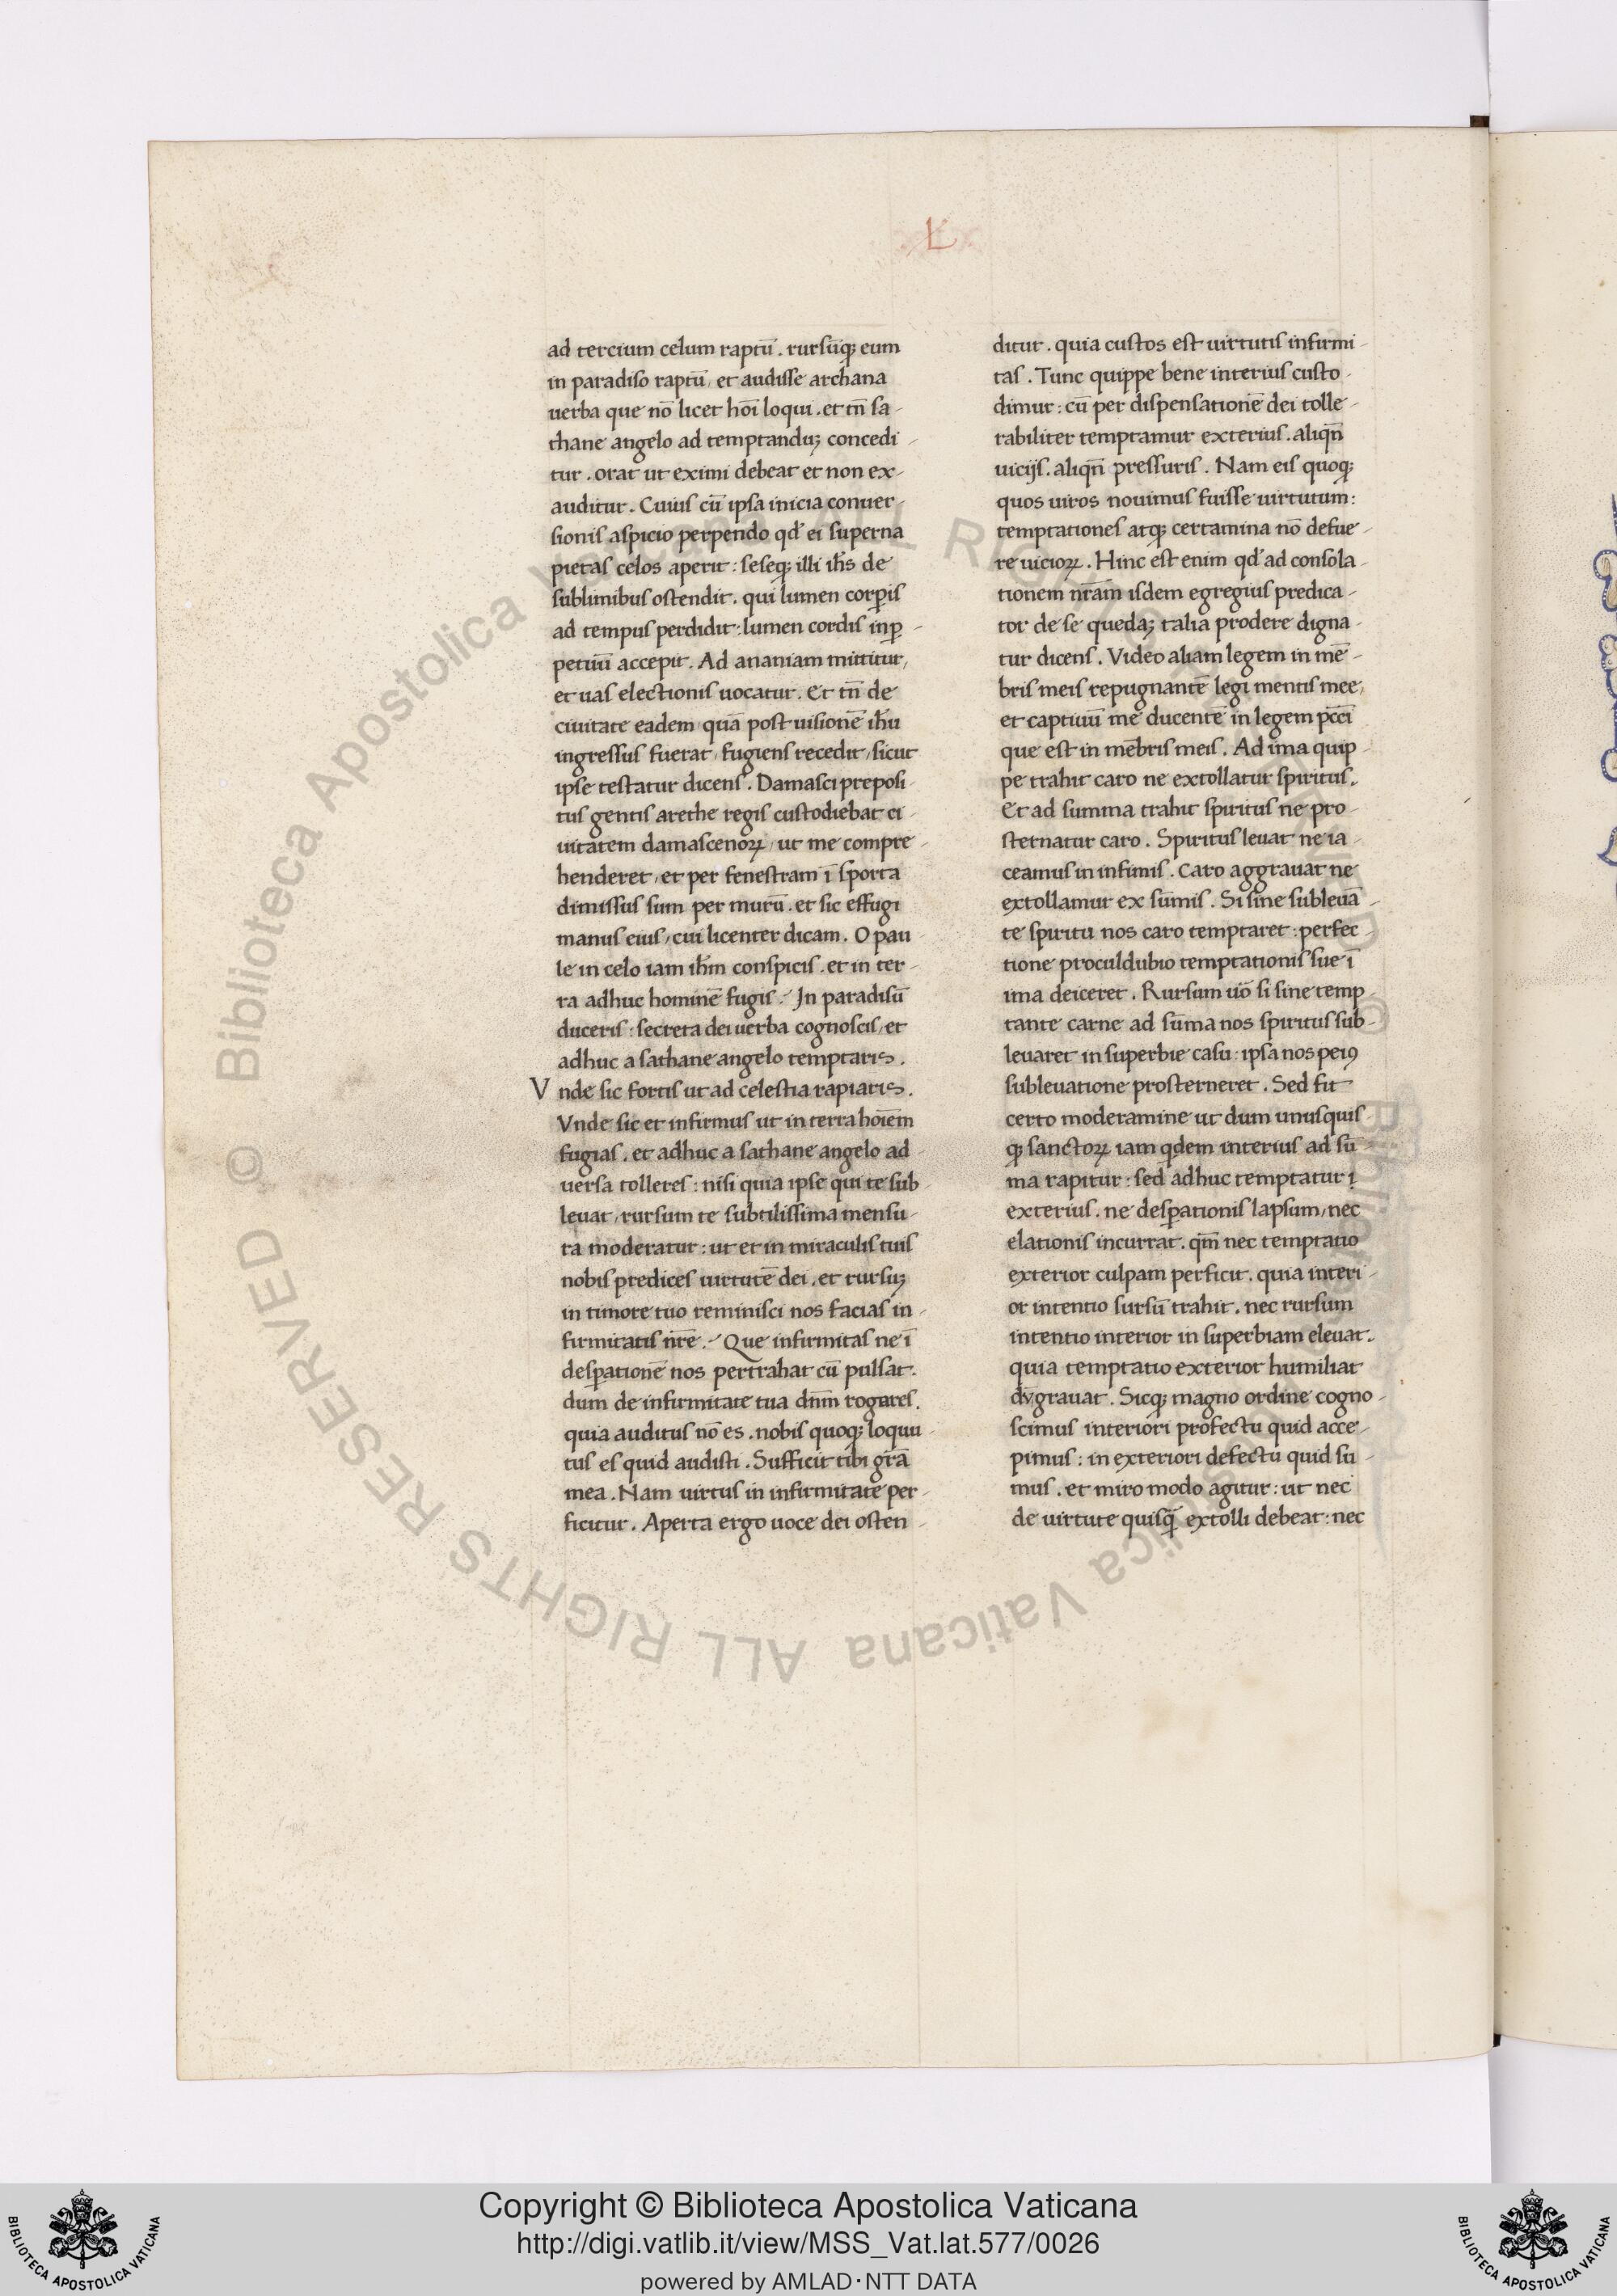 L
ad tercium celum raptū. rursūq; eum
in paradiso raptū, et audisse archana
uerba que nō licet hoī loqui. et tn̄ sa-
thane angelo ad temptanduꝫ concedi-
tur. orat ut eximi debeat et non ex-
auditur. Cuius cū ipsa inicia conuer-
sionis aspicio perpendo qd̄ ei superna
pietas celos aperit: seseq; illi ih̄s de
sublimibus ostendit. qui lumen corꝑis
ad tempus perdidit: lumen cordis inꝑ-
petuū accepit. Ad ananiam mittitur,
et uas electionis uocatur. Et tn̄ de
ciuitate eadem quā post uisionē ih̄u
ingressus fuerat, fugiens recedit, sicut
ipse testatur dicens. Damasci preposi-
tus gentis arethe regis custodiebat ci-
uitatem damascenoꝝ, ut me compre-
henderet, et per fenestram ī sporta
dimissus sum per murū. et sic effugi
manus eius, cui licenter dicam. O pau-
le in celo iam ih̄m conspicis. et in ter-
ra adhuc hominē fugis. In paradisū
duceris: secreta dei uerba cognoscis, et
adhuc a sathane angelo temptaris.
Vnde sic fortis ut ad celestia rapiaris.
Vnde sic et infirmus ut in terra hoīem
fugias. et adhuc a sathane angelo ad-
uersa tolleres: nisi quia ipse qui te sub-
leuat, rursum te subtilissima mensu-
ra moderatur: ut et in miraculis tuis
nobis predices uirtutē dei. et rursuꝫ
in timore tuo reminisci nos facias in-
firmitatis nr̄e. Que infirmitas ne ī
desꝑationē nos pertrahat cū pulsat.
dum de infirmitate tua dn̄m rogares.
quia auditus nō es. nobis quoq; loquu-
tus es quid audisti. Sufficit tibi gr̄a
mea. Nam uirtus in infirmitate per-
ficitur. Aperta ergo uoce dei osten-
ditur. quia custos est uirtutis infirmi-
tas. Tunc quippe bene interius custo-
dimur: cū per dispensationē dei tolle-
rabiliter temptamur exterius. aliqn̄
uicijs. aliqn̄ pressuris. Nam eis quoq;
quos uiros nouimus fuisse uirtutum:
temptationes atq; certamina nō defue-
re uicioꝝ. Hinc est enim qd̄ ad consola-
tionem nr̄am isdem egregius predica-
tor de se quedaꝫ talia prodere digna-
tur dicens. Video aliam legem in mē-
bris meis repugnantē legi mentis mee,
et captiuū me ducentē in legem pcc̄i
que est in mēbris meis. Ad ima quip-
pe trahit caro ne extollatur spiritus.
Et ad summa trahit spiritus ne pro-
sternatur caro. Spiritus leuat ne ia-
ceamus in infimis. Caro aggrauat ne
extollamur ex sūmis. Si sine subleuā-
te spiritu nos caro temptaret: perfec-
tione proculdubio temptationis sue ī
ima deiceret. Rursum uō si sine temp-
tante carne ad sūma nos spiritus sub-
leuaret in superbie casu: ipsa nos peiꝰ
subleuatione prosterneret. Sed fit
certo moderamine ut dum unusquis-
q; sanctoꝝ iam qdem interius ad sū-
ma rapitur: sed adhuc temptatur
exterius. ne desꝑationis lapsum, nec
elationis incurrat. qm̄ nec temptatio
exterior culpam perficit. quia interi-
or intentio sursū trahit. nec rursum
intentio interior in superbiam eleuat.
quia temptatio exterior humiliat
dū grauat. Sicq; magno ordine cogno-
scimus interiori profectu quid acce-
pimus: in exteriori defectu quid su-
mus. et miro modo agitur: ut nec
de uirtute quisq̄ extolli debeat: nec
© Biblioteca Apostolica Vaticana ALL RIGHTS RESERVED
© Biblioteca Apostolica Vaticana ALL RIGHTS RESERVED
BIBLIOTECA APOSTOLICA VATICANA
Copyright © Biblioteca Apostolica Vaticana
http://digi.vatlib.it/view/MSS_Vat.lat.577/0026
powered by AMLAD·NTT DATA
BIBLIOTECA APOSTOLICA VATICANA